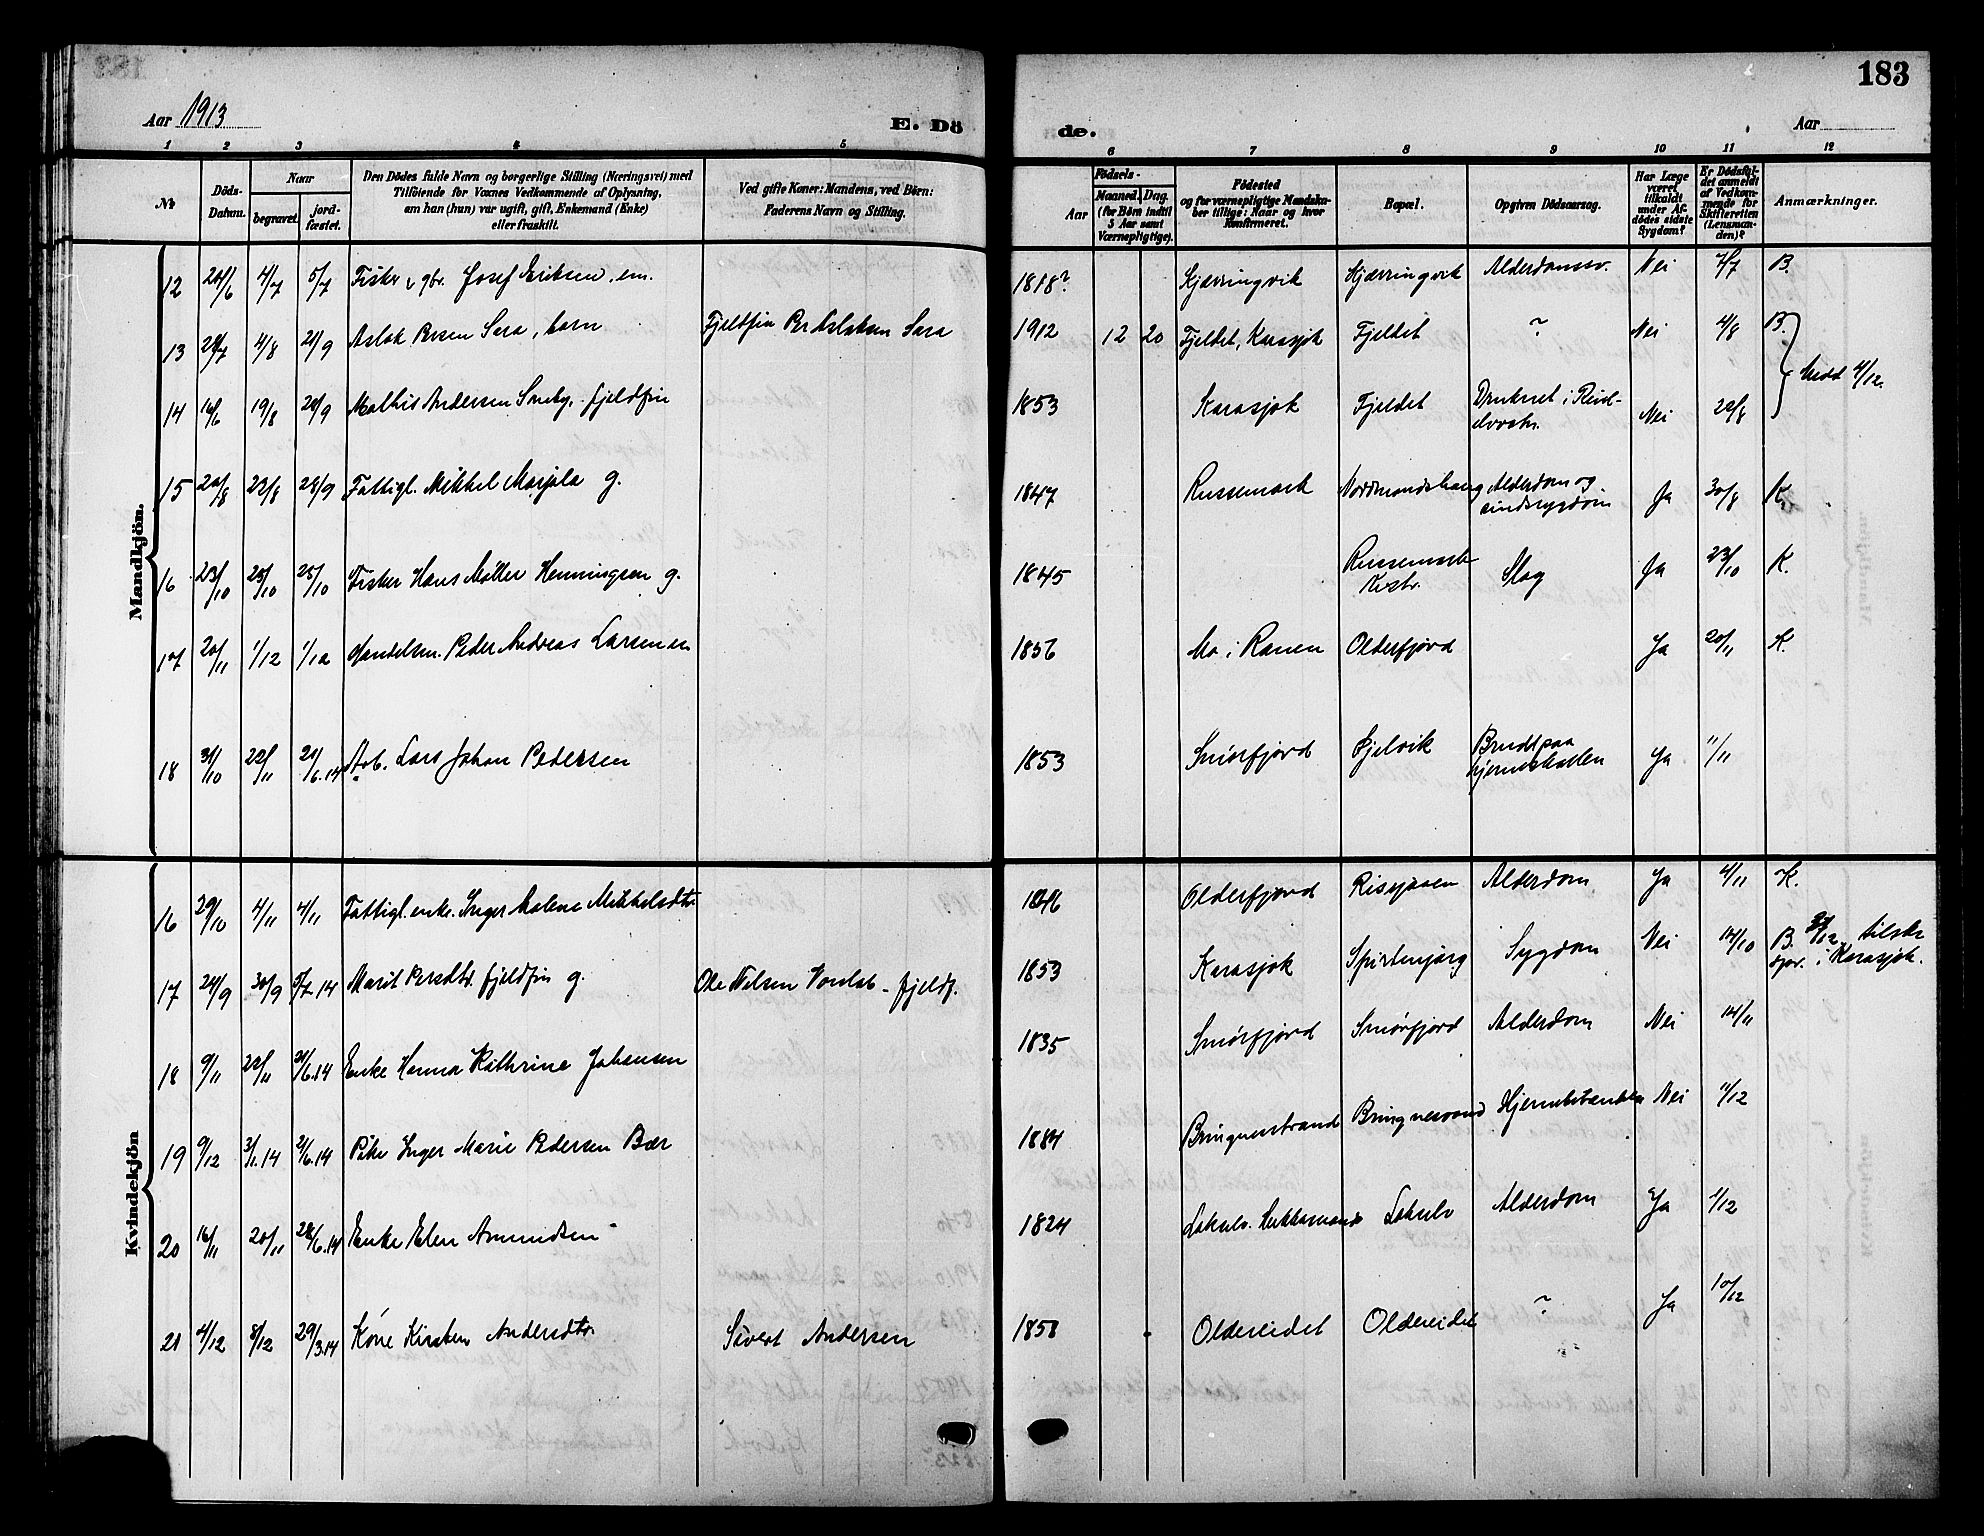 183
Aar 1913
E. Dö
de.
Aar
1 2 3 4 5 6 7 8 9 10 11 12
№
Döds-Datum.
Naar
begravet.
jord-fæstet.
Den Dödes fulde Navn og borgerlige Stilling (Næringsvei) med
Tilföiende for Voxnes Vedkommende af Oplysning,
om han (hun) var ugift, gift, Enkemand (Enke)
eller fraskilt.
Ved gifte Koner: Mandens, ved Börn:
Faderens Navn og Stilling.
Aar
Födsels-
Maaned. Dag.
(for Börn indtil
5 Aar samt
Værnepligtige).
Födested
og for værnepligtige Mandska-
ber tillige: Naar og hvor
Konfirmeret.
Bopæl.
Opgiven Dödsaarsag.
Har Læge
været
tilkaldt
under Af-
dödes sidste
Sygdom?
Er Dödsfal-
det anmeldt
af Vedkom-
mende for
Skifteretten
(Lensman-
den)?
Anmærkninger.
Mandkjön.
12 24/6 4/7 5/7 Fisker & gbr. Josef Eriksen, em. 1818? Kjærringvik Kjærringvik Alderdomssv. Nei 4/7 B.
13 28/7 4/8 28/9 Aslak Persen Sara, barn Fjeldfin Per Aslaksen Sara 1912 12 20 Fjeldet, Karasjok Fjeldet ? Nei 4/8 B.
14 16/6 19/8 28/9 Mathis Andersen Somby. fjeldfin 1853 Karasjok Fjeldet Druknet i Nei 22/8
Medd 4/12.
15 20/8 23/8 28/9 Fattigl. Mikkel Marjala g. 1847 Russemark Nordmandshaug Alderdom og
sindssygdom Ja 30/8 K.
16 23/10 25/10 25/10 Fisker Hans Møller Henningsen g. 1845 Slag Ja 23/10 K.
17 20/11 1/12 1/12 Handelsm. Peder Andreas Larsen em 1856 Mo i Ranen Olderfjord Ja 20/11 K.
18 31/10 22/11 21/6.14 Arb. Lars Johan Pedersen 1853 Smörfjord Brudt paa
hjerneskallen Ja 11/11
Kvindekjön
16 29/10 4/11 4/11 Fattigl. enke. Inger Malene Mikkelsdtr. 1846 Olderfjord Alderdom Ja 4/11 K.
17 24/9 30/9 5/7.14 Marit Persdtr. fjeldfin g. Ole Nilsen - fjeldf. 1853 Karasjok Spirtenjarg Sygdom Nei 14/10 B.
i Karasjok.
18 9/11 22/11 21/6.14 Enke Hanna Kathrine Johansen 1835 Smörfjord Smörfjord Alderdom Nei 14/11
19 9/12 3/1.14 21/6.14 Pike Inger Marie Pedersen Bær 1884 Bringnesstrand Nei 11/12
20 16/11 20/11 28/6.14 Enke Elen Amundsen 1824 Lakselv Alderdom Ja 1/12
21 4/12 8/12 29/3.14 Kone Kirsten Andersdtr. Sivert Andersen 1858 Oldereidet Oldereidet ? Ja 10/12